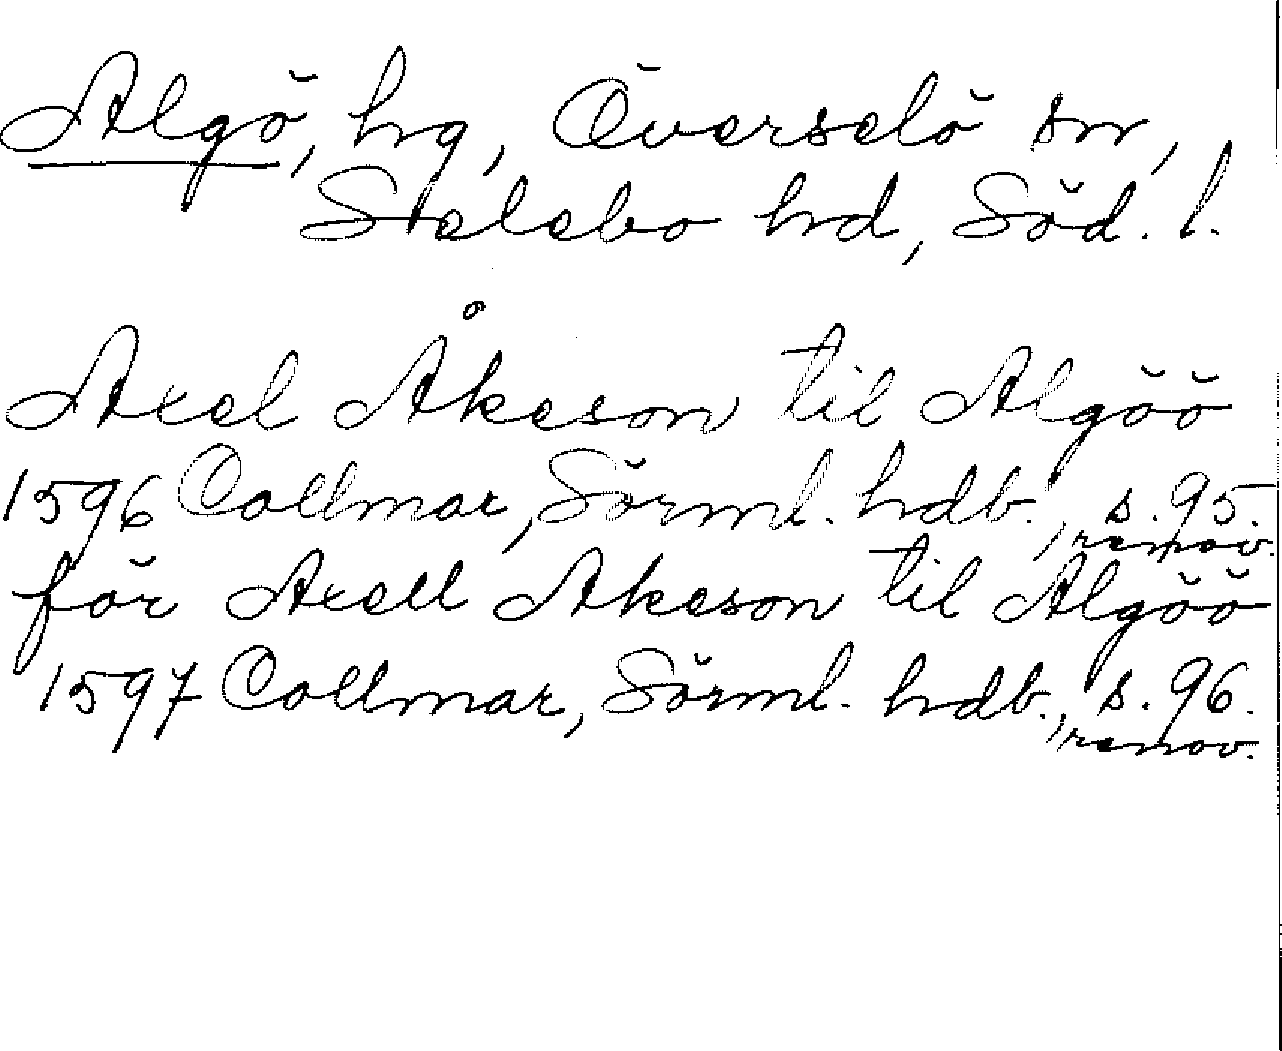 Algö, hg, Överselö sn,
Selebo hd, Söd. l.
Axel Åkeson til Algöö
1596 Collmar, Sörml. hdb., s. 95.
, renov.
för Axell Akeson til Algöö
1597 Collmar, Sörml. hdb., s. 96.
, renov.